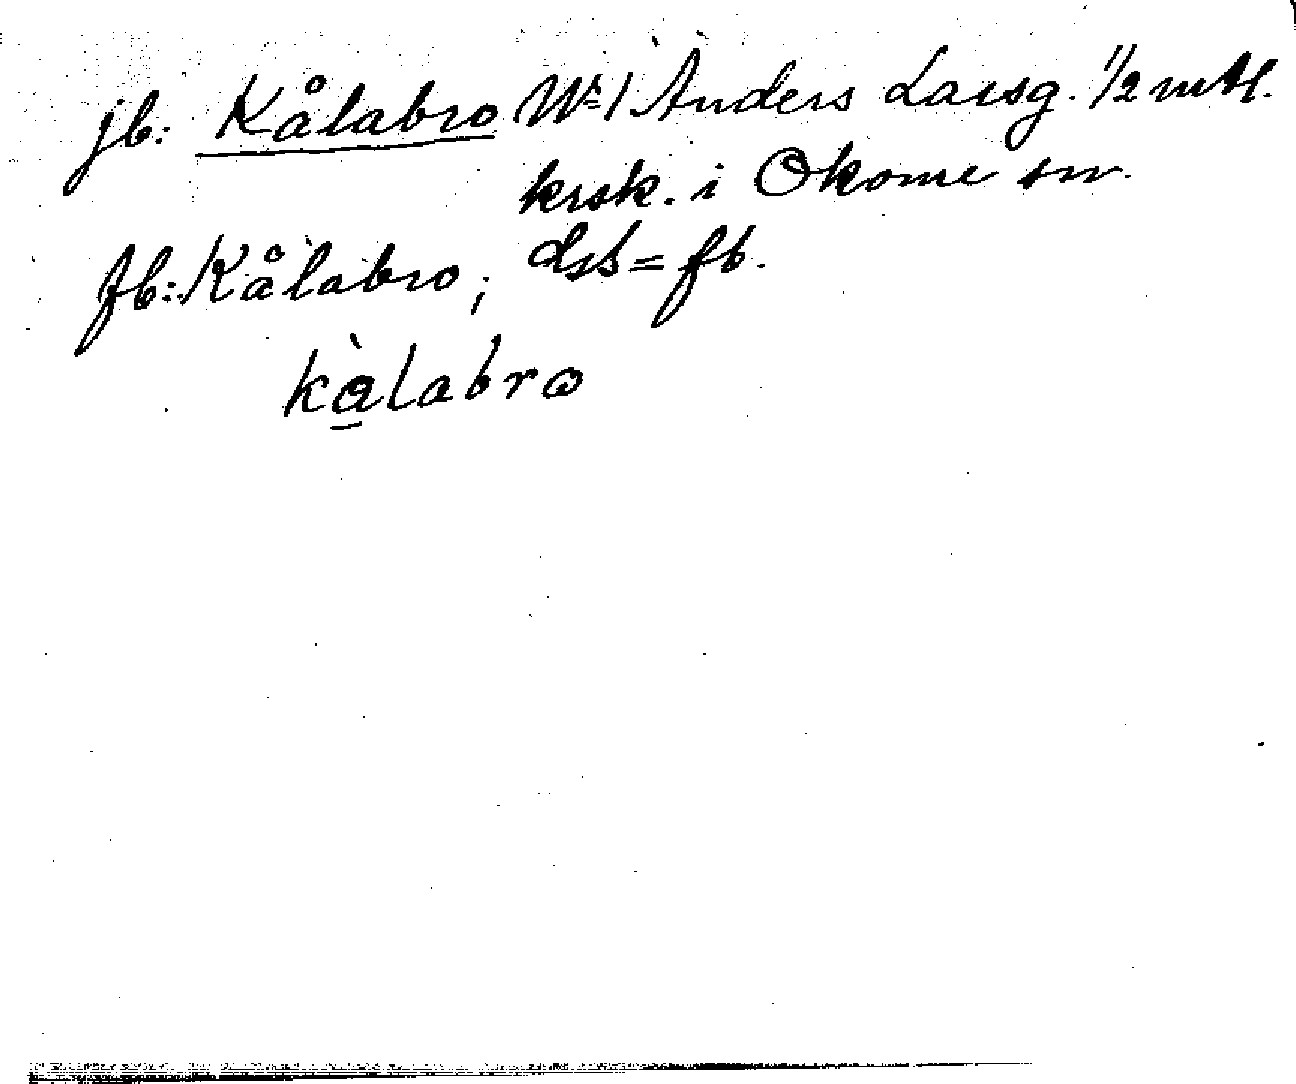 jb: Kålabro Nº 1 Anders Larsg. 1/2 mtl.
krsk. i Okome sn.
fb: Kålabro; dsb = fb.
kàlabrω